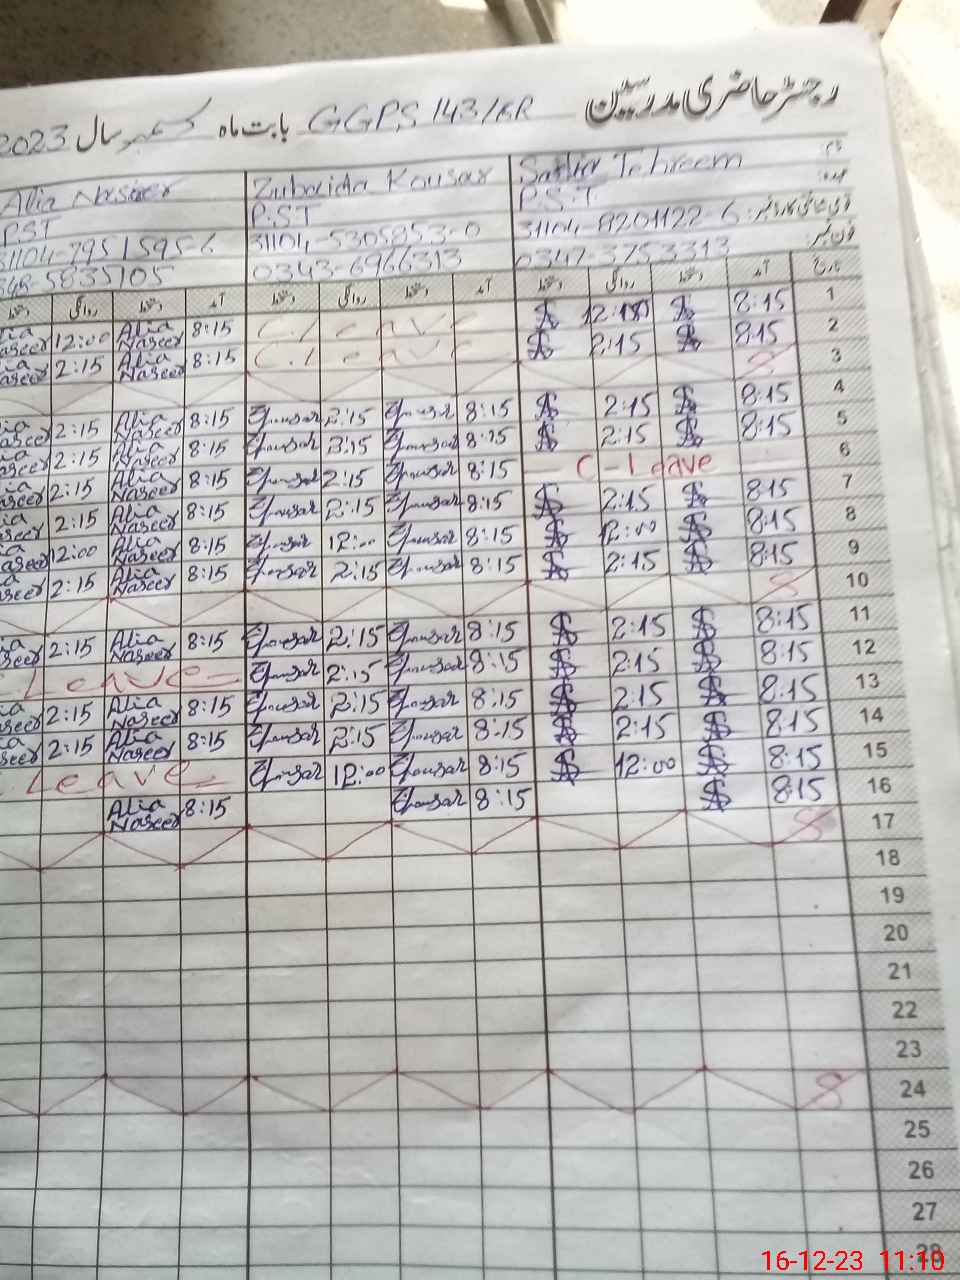 رجسٹر حاضری مدرسین GGPS 143/6R بابت ماہ دسمبر سال 2023
نام Sadia Tehreem Zubaida Kousar Alia Naseer
عہدہ P.S.T P.S.T PST
قومی شناختی کارڈ نمبر: 31104-8201122-6 31104-5305853-0 31104-7951595-6
فون نمبر: 0347-3753313 0343-6966313 348-5835105
تاریخ آمد دستخط روانگی دستخط آمد دستخط روانگی دستخط آمد دستخط روانگی دستخط
1 8:15 12:00 C.Leave 8:15 Alia Naseer 12:00 Alia Naseer
2 8:15 2:15 C.Leave 8:15 Alia Naseer 2:15 Alia Naseer
3 S
4 8:15 2:15 8:15 Kousar 2:15 Kousar 8:15 Alia Naseer 2:15 Alia Naseer
5 8:15 2:15 8:15 Kousar 2:15 Kousar 8:15 Alia Naseer 2:15 Alia Naseer
6 C-Leave 8:15 Kousar 2:15 Kousar 8:15 Alia Naseer 2:15 Alia Naseer
7 8:15 2:15 8:15 Kousar 2:15 Kousar 8:15 Alia Naseer 2:15 Alia Naseer
8 8:15 12:00 8:15 Kousar 12:00 Kousar 8:15 Alia Naseer 12:00 Alia Naseer
9 8:15 2:15 8:15 Kousar 2:15 Kousar 8:15 Alia Naseer 2:15 Alia Naseer
10 S
11 8:15 2:15 8:15 Kousar 2:15 Kousar 8:15 Alia Naseer 2:15 Alia Naseer
12 8:15 2:15 8:15 Kousar 2:15 Kousar Leave
13 8:15 2:15 8:15 Kousar 2:15 Kousar 8:15 Alia Naseer 2:15 Alia Naseer
14 8:15 2:15 8:15 Kousar 2:15 Kousar 8:15 Alia Naseer 2:15 Alia Naseer
15 8:15 12:00 8:15 Kousar 12:00 Kousar Leave
16 8:15 8:15 Kousar 8:15 Alia Naseer
17 S
18
19
20
21
22
23
24 S
25
26
27
28
16-12-23 11:10